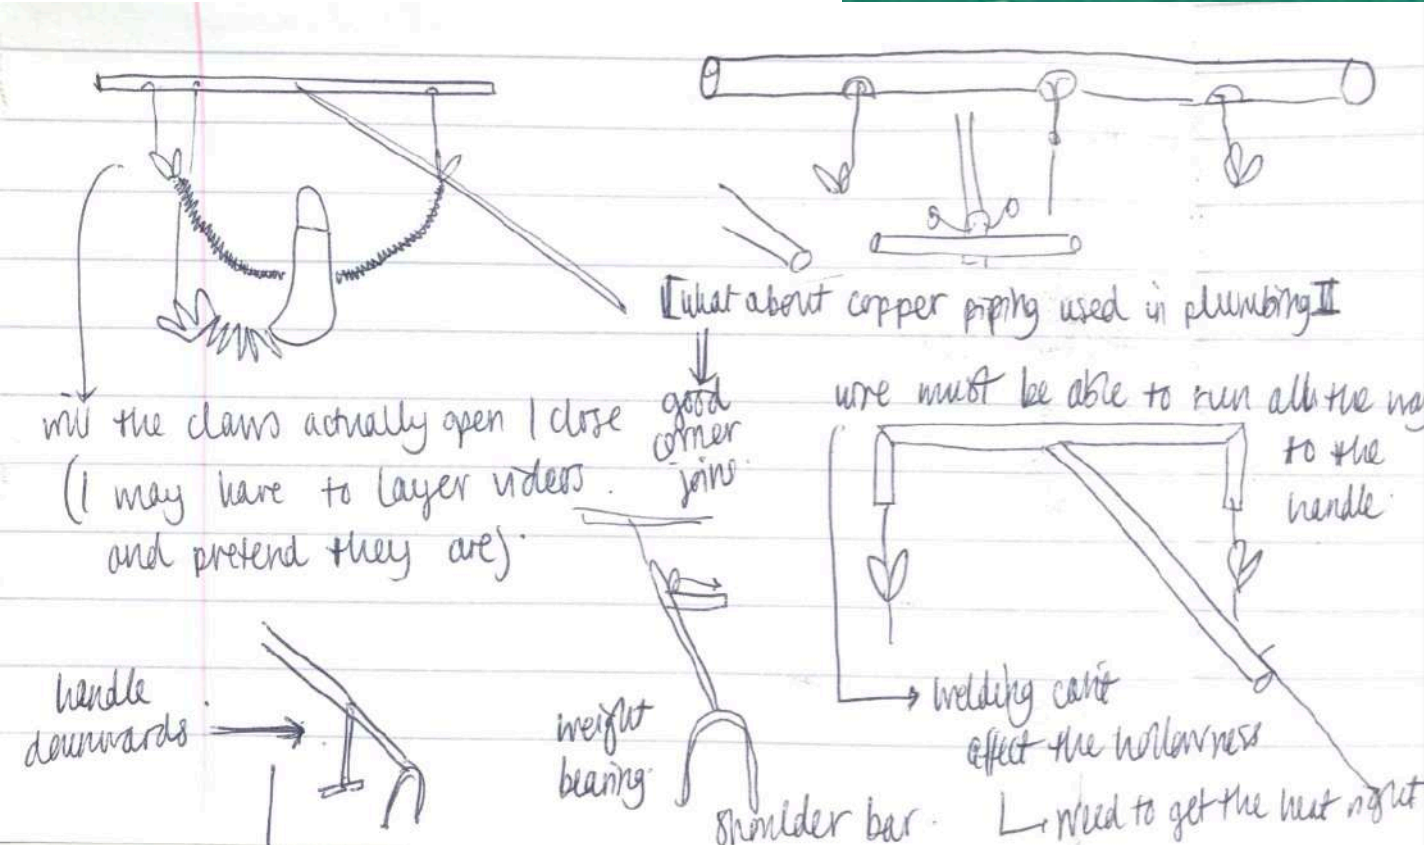 [what about copper piping used in plumbing]
will the claws actually open / close
(I may have to layer videos.
and pretend they are).
good
corner
joins.
wire must be able to run all the
to the
handle.
handle
downwards
weight
bearing.
shoulder bar.
welding cant
affect the hollowness
need to get the heat right